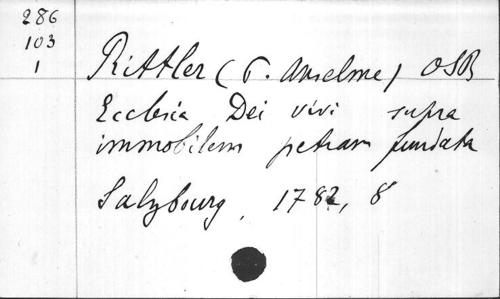 286
103
1
Rittler (P. Anselme) OSB
Ecclesia Dei vivi supra
immobilem petram fundata
Salzbourg, 1782, 8°